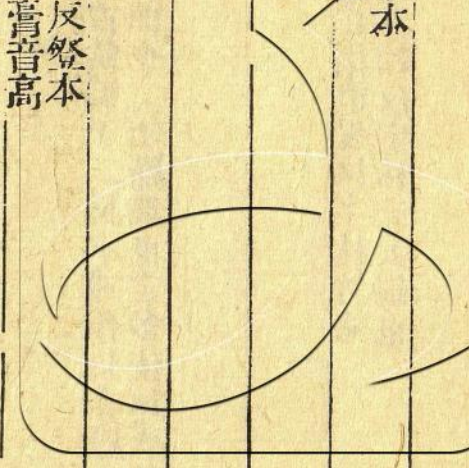 本
反發本
膏音高